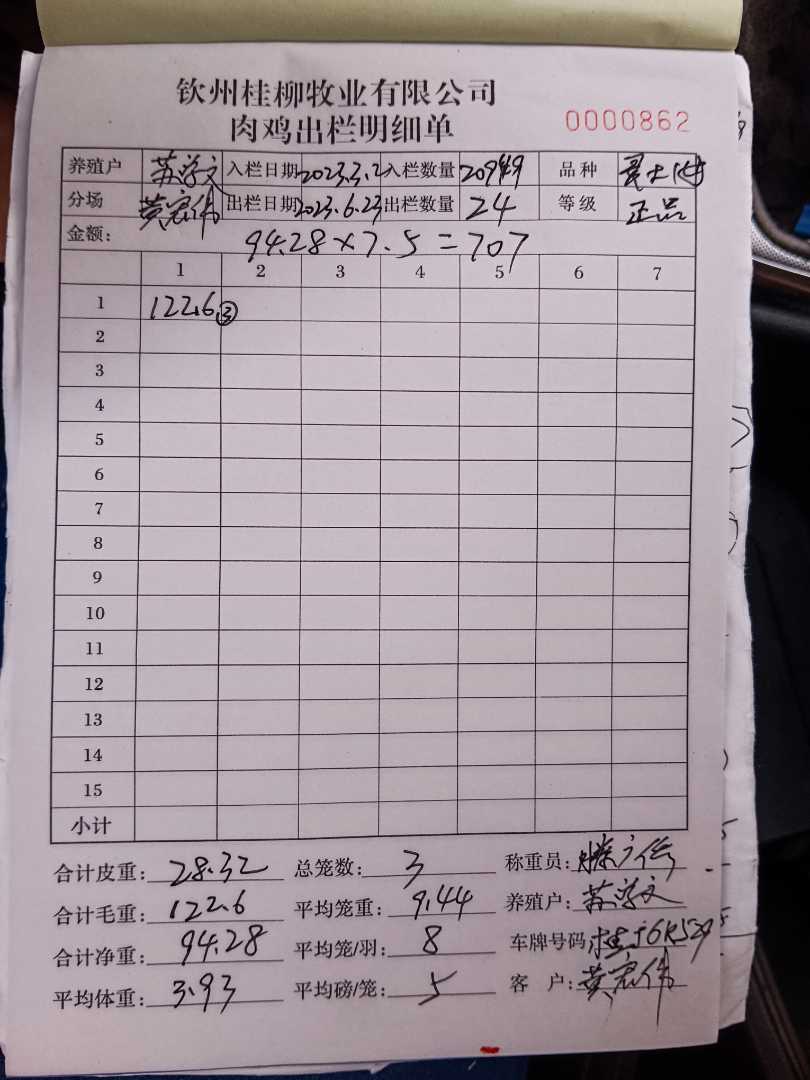 钦州桂柳牧业有限公司
肉鸡出栏明细单 0000862
养殖户 苏学文 入栏日期 2023.3.2 入栏数量 20949 品种
分场 黄冠伟 出栏日期 2023.6.23 出栏数量 24 等级 正品
金额: 94.28×7.5=707
1 2 3 4 5 6 7
1 122.6 ③
2
3
4
5
6
7
8
9
10
11
12
13
14
15
小计
合计皮重: 28.32 总笼数: 3 称重员:
合计毛重: 122.6 平均笼重: 9.44 养殖户: 苏学文
合计净重: 94.28 平均笼/羽: 8 车牌号码
平均体重: 3.93 平均磅/笼: 5 客 户: 黄冠伟